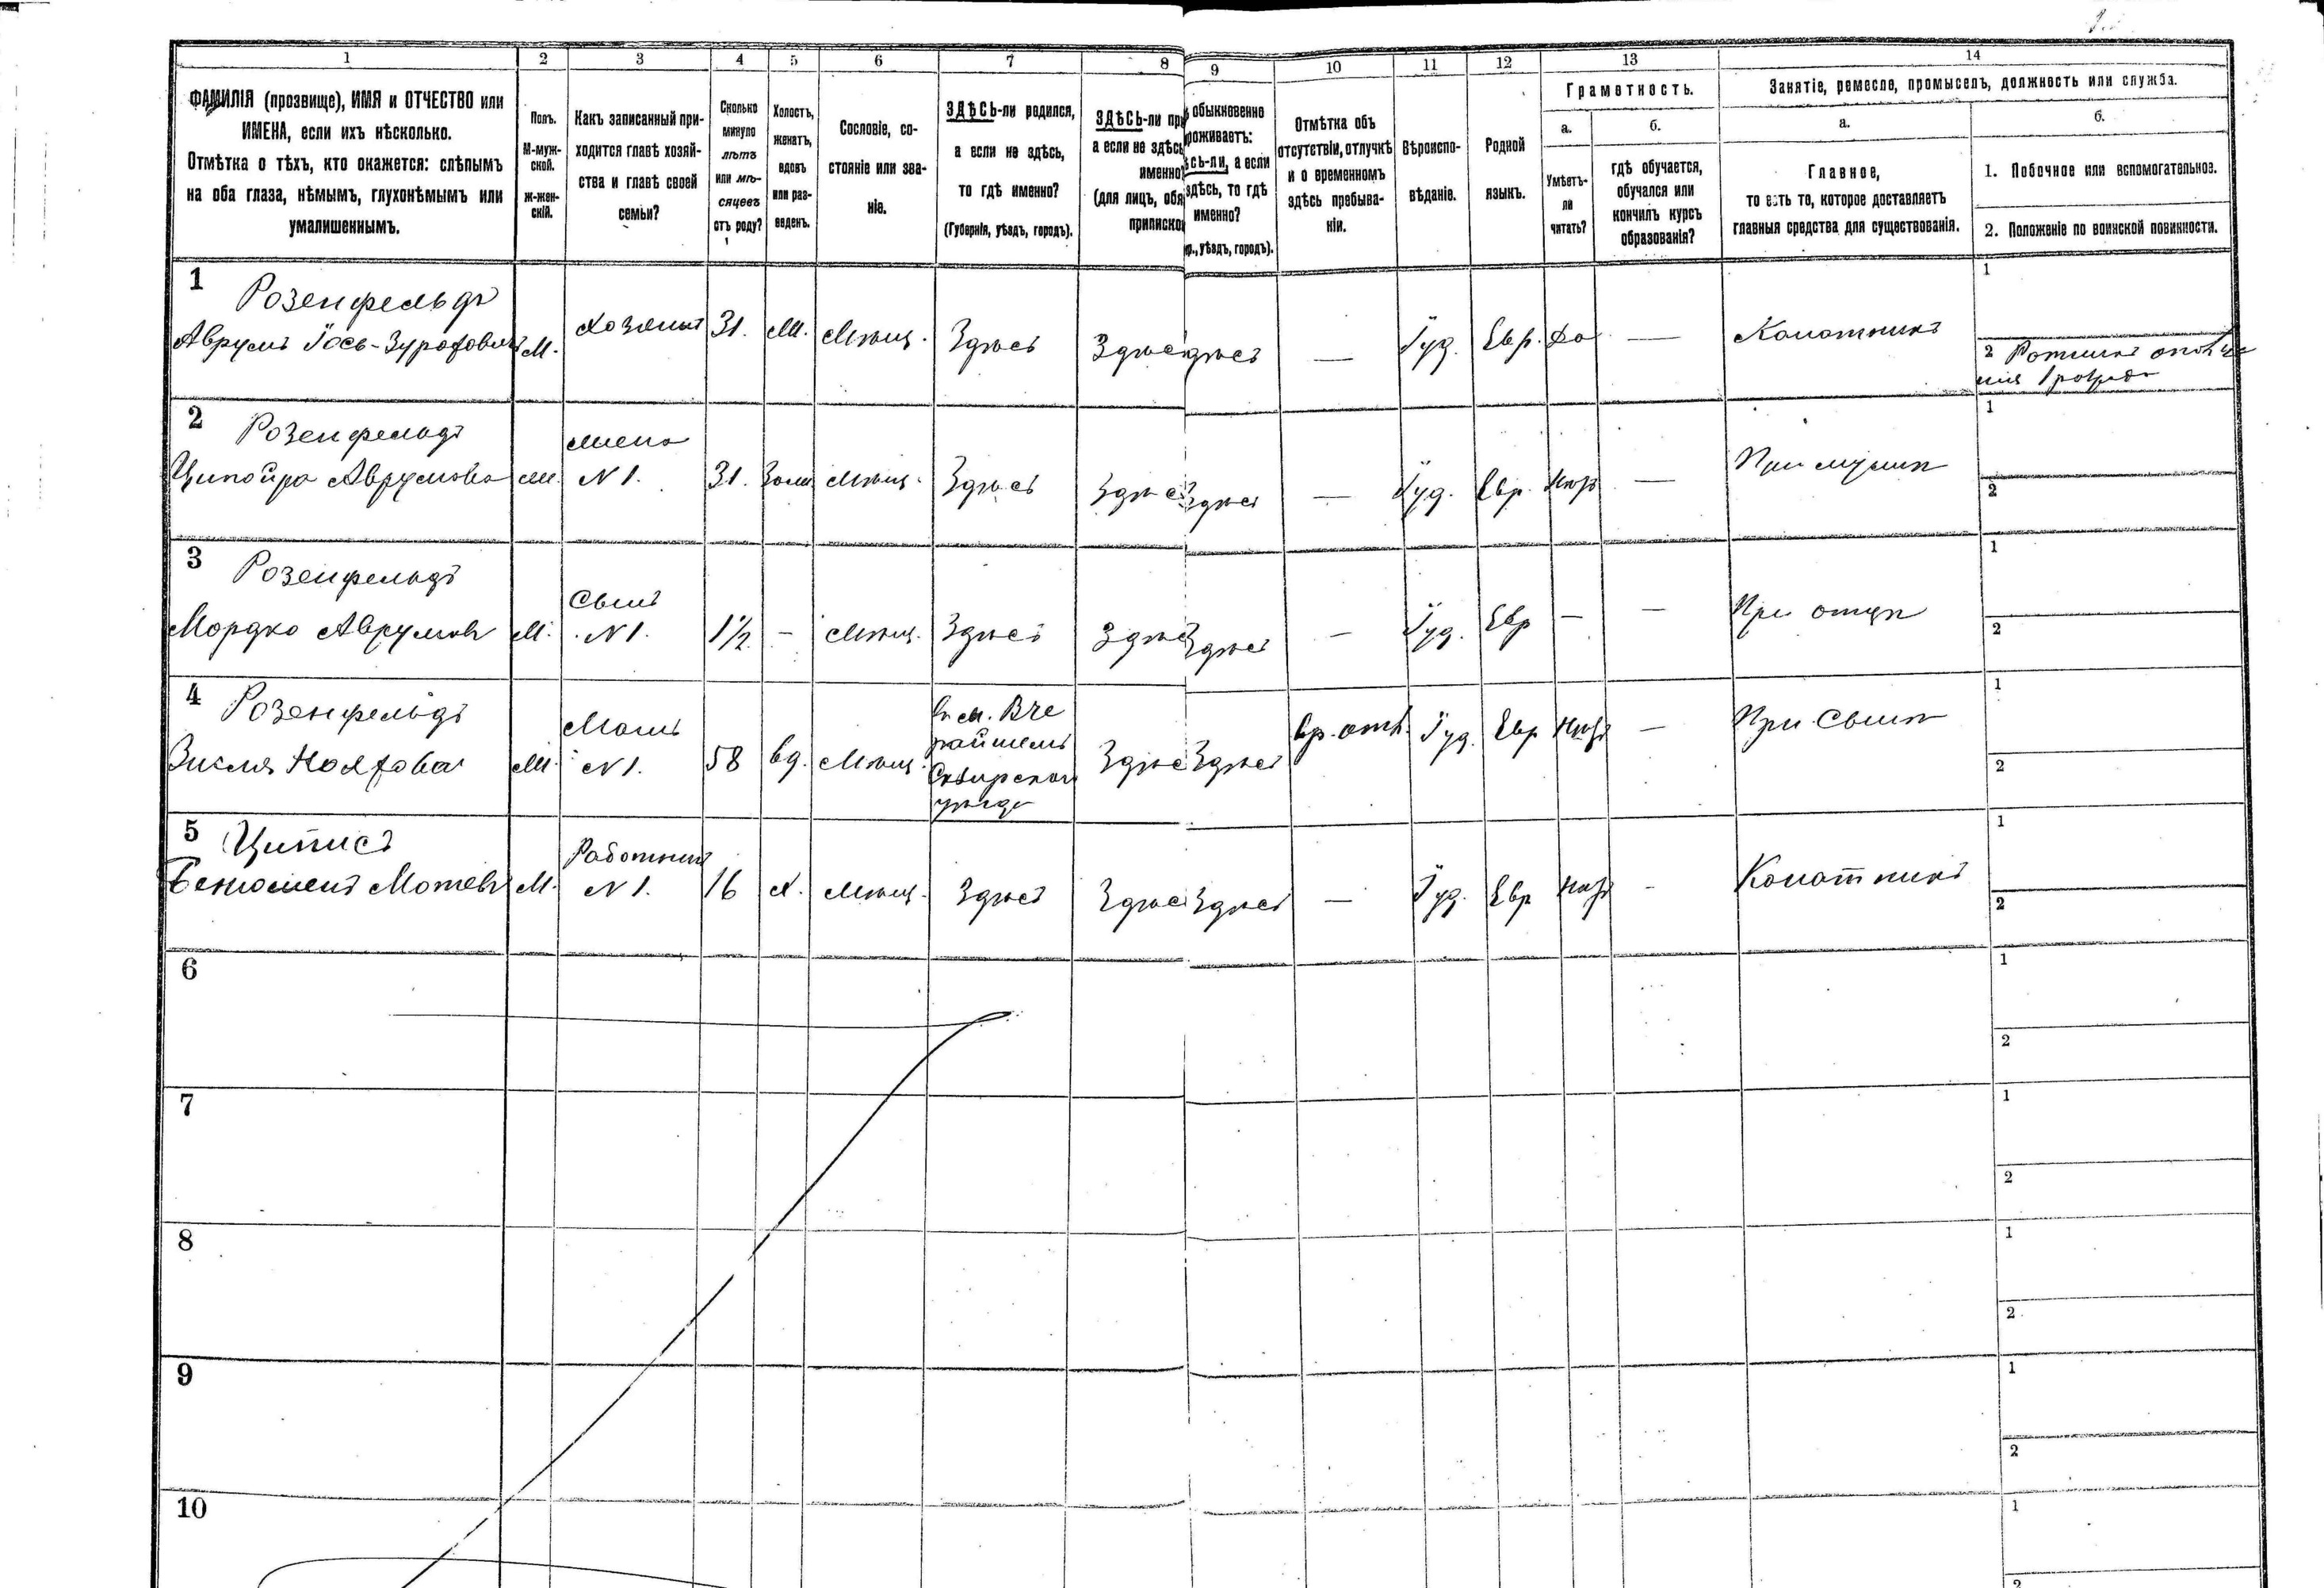 1 2 3 4 5 6 7 8 9 10 11 12 13 14
ФАМИЛІЯ (прозвище), ИМЯ и ОТЧЕСТВО или
ИМЕНА, если ихъ нѣсколько.
Отмѣтка о тѣхъ, кто окажется: слѣпымъ
на оба глаза, нѣмымъ, глухонѣмымъ или
умалишеннымъ.
Полъ.
М-муж-
ской.
ж-жен-
скій.
Какъ записанный при-
ходится главѣ хозяй-
ства и главѣ своей
семьи?
Сколько
минуло
лѣтъ
или мѣ-
сяцевъ
отъ роду?
Холостъ,
женатъ,
вдовъ
или раз-
веденъ.
Сословіе, со-
стояніе или зва-
ніе.
ЗДѢСЬ-ли родился,
а если не здѣсь,
то гдѣ именно?
(Губернія, уѣздъ, городъ).
ЗДѢСЬ-ли при
а если не здѣсь
именно
(для лицъ, обя
приписко
обыкновенно
роживаетъ:
сь-ли, а если
здѣсь, то гдѣ
именно?
р., уѣздъ, городъ).
Отмѣтка объ
отсутствіи, отлучкѣ
и о временномъ
здѣсь пребыва-
ніи.
Вѣроиспо-
вѣданіе.
Родной
языкъ.
Грамотность.
а.
Умѣетъ-
ли
читать?
б.
гдѣ обучается,
обучался или
кончилъ курсъ
образованія?
Занятіе, ремесло, промыселъ, должность или служба.
а.
Главное,
то есть то, которое доставляетъ
главныя средства для существованія.
б.
1. Побочное или вспомогательное.
2. Положеніе по воинской повинности.
1 Розенфельдъ
Аврумъ Іось- М. Хозяинъ 31. Мѣщ. Здѣсь Здѣс дѣсь — Іуд. Евр. Да — Канатникъ
1
2 Ратникъ ополче
нія 1 разряда
2 Розенфельдъ
Ципойра Аврумова
жена
N 1. 31. Зам Мѣщ. Здѣсь Здѣс Здѣсь — Іуд. Евр. Нѣтъ — При мужѣ
1
2
3 Розенфельдъ
Мордко Аврумовъ М.
Сынъ
N 1. 1½ - Мѣщ. Здѣсь Здѣс Здѣсь — Іуд. Евр — — При отцѣ
1
2
4 Розенфельдъ
Мать
N 1. 58 вд. Мѣщ.
Въ м. Вче
райшемъ
Сквирскаго
уѣзда
Здѣс Здѣсь вр. отл. Іуд. Евр Нѣтъ — При сынѣ
1
2
5 Циписъ
Бенюменъ Мотевъ М.
Работникъ
N 1. 16 Х. Мѣщ. Здѣсь Здѣс Здѣсь — Іуд. Евр Нѣтъ - Канатникъ
1
2
6
1
2
7
1
2
8
1
2
9
1
2
10
1
2